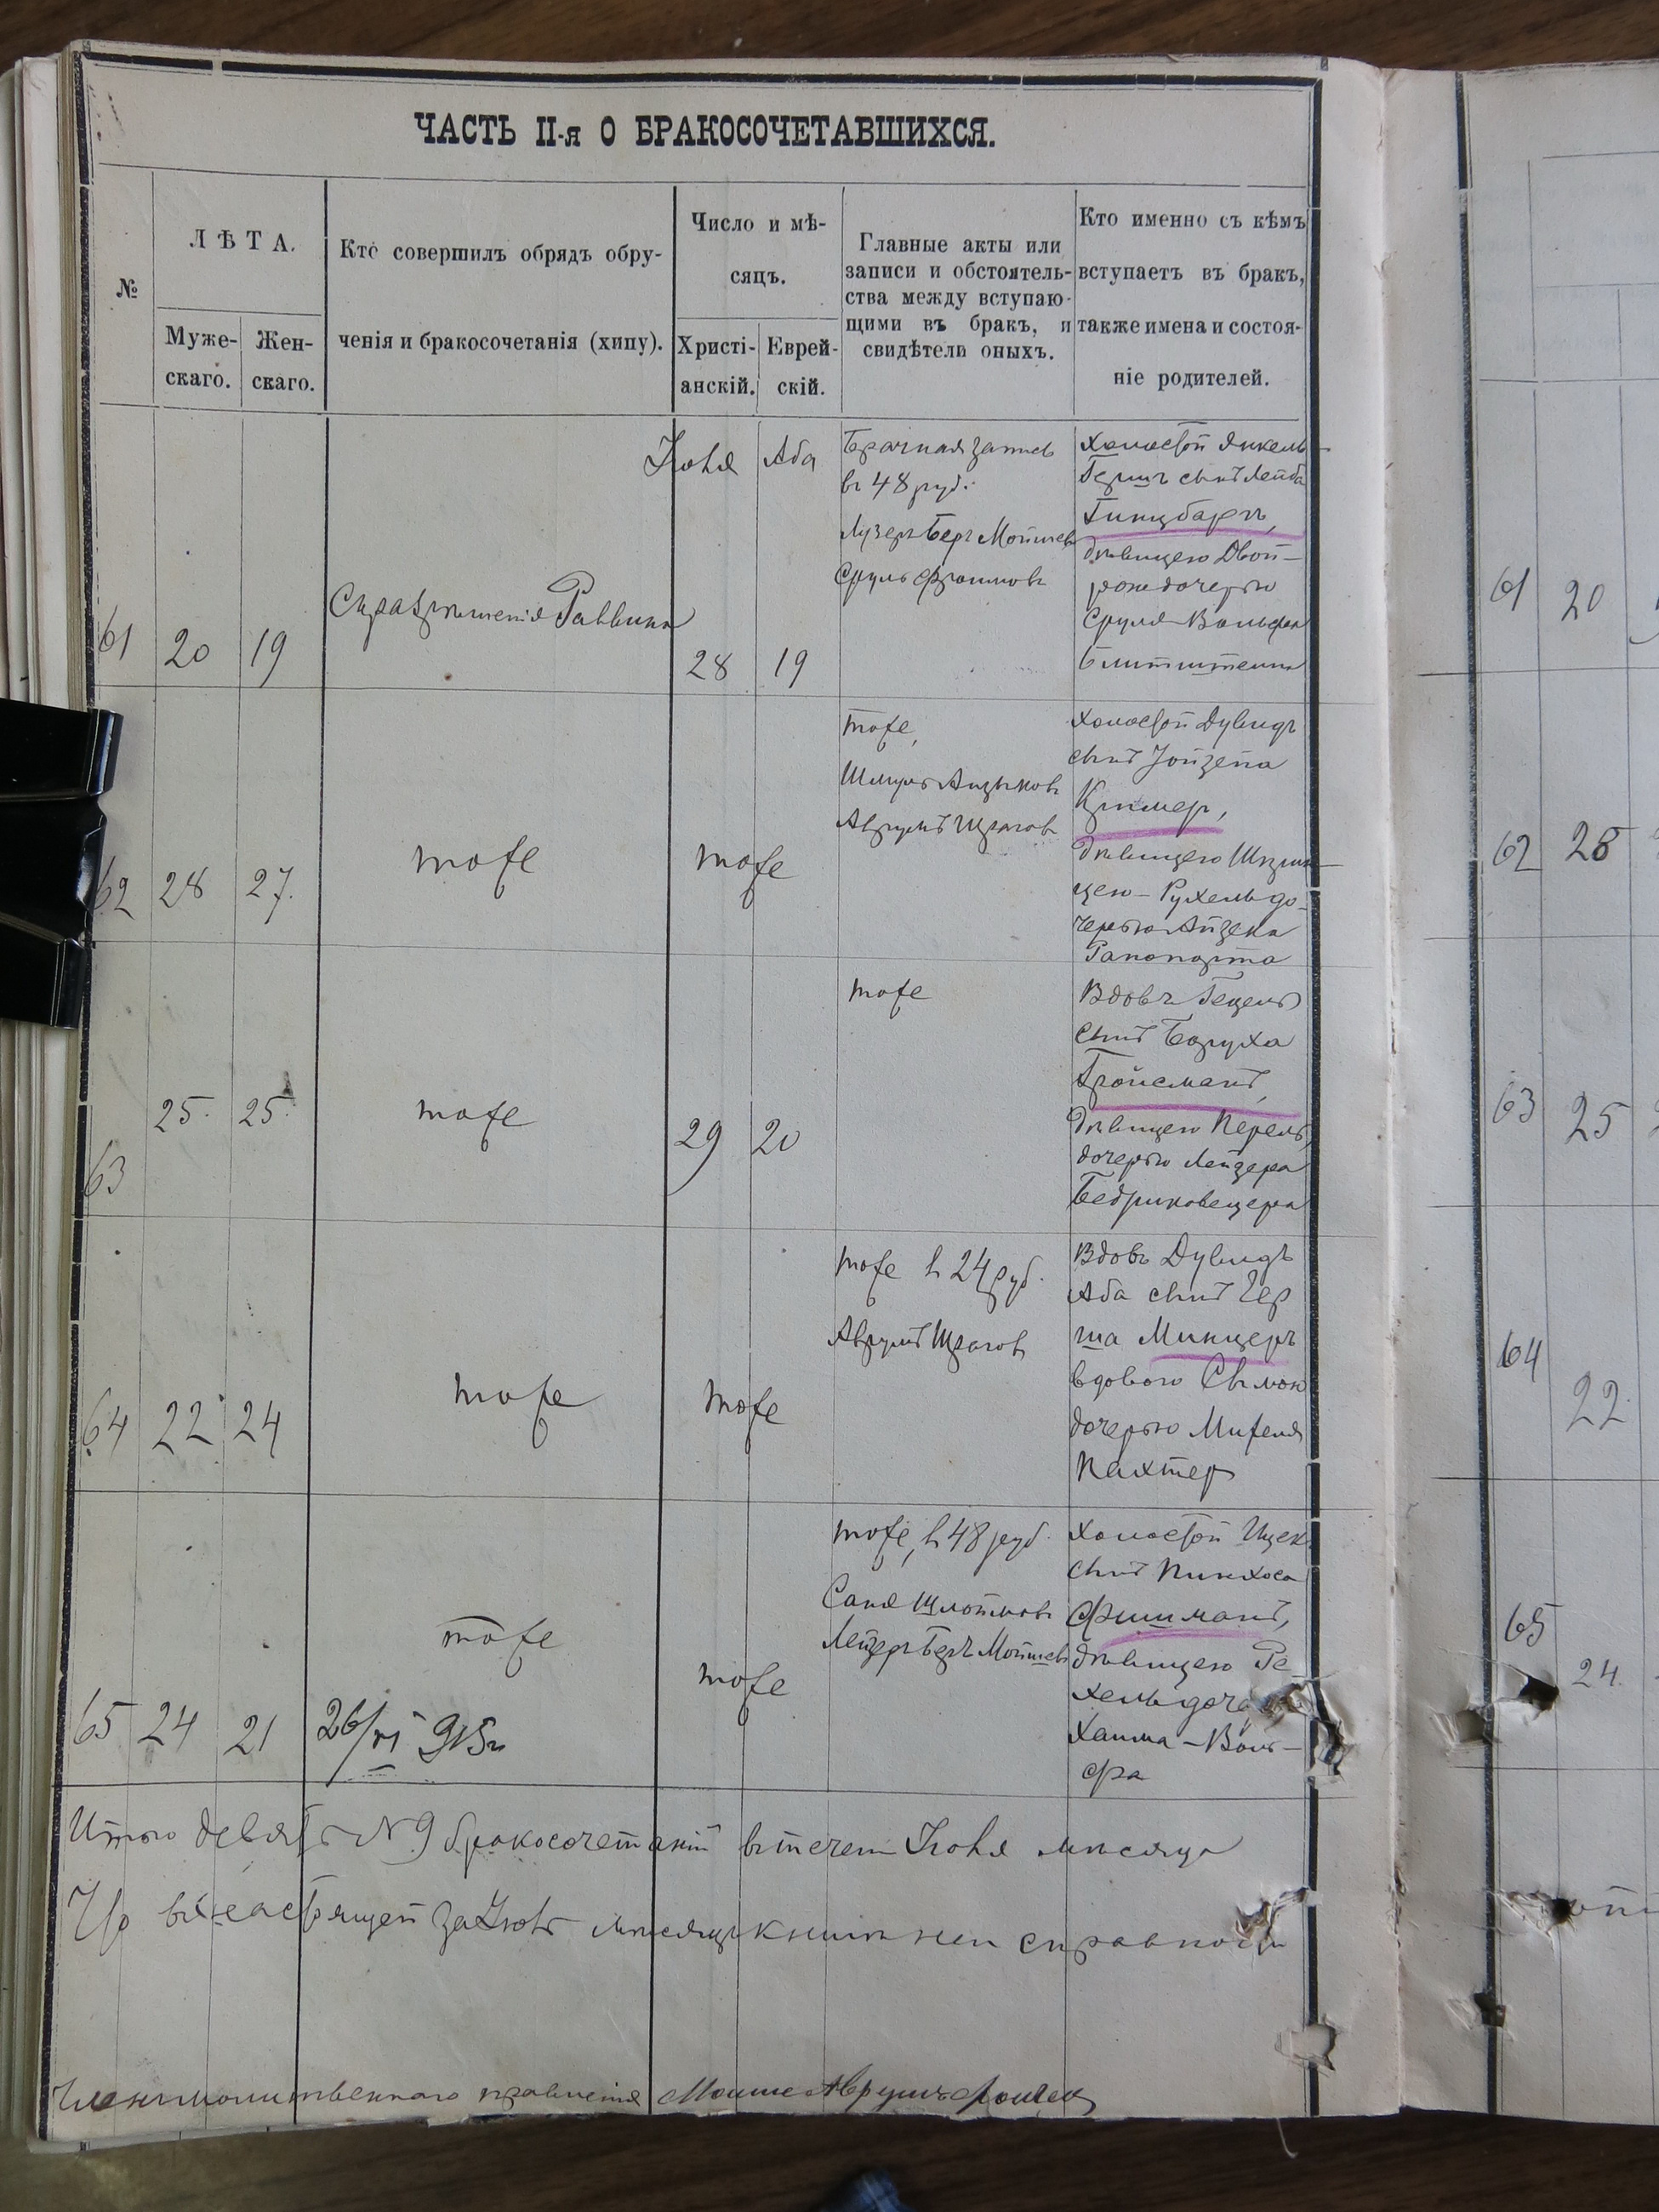 ЧАСТЬ II-я О БРАКОСОЧЕТАВШИХСЯ.
№
ЛѢТА.
Муже-
скаго.
Жен-
скаго.
Кто совершилъ обрядъ обру-
ченія и бракосочетанія (хипу).
Число и мѣ-
сяцъ.
Христі-
анскій.
Еврей-
скій.
Главные акты или
записи и обстоятель-
ства между вступаю-
щими въ бракъ, и
свидѣтели оныхъ.
Кто именно съ кѣмъ
вступаетъ въ бракъ,
также имена и состоя-
ніе родителей.
61
20
19
Съ разрѣшенія Раввина
Іюня
28
Аба
19
Брачная запись
въ 48 руб.
Лузеръ Беръ Мошков
Сруль
Холостой Янкель
Гершъ сынъ Лейба
Гинцбаргъ,
дѣвицею Двой-
рою дочерью
Сруля-Вольфа
Блитштейна
62
28
27.
тоже
тоже
тоже,
Шмуль Анцыковъ
Аврумъ Шраговъ
Холостой Дувидъ
сынъ Іойзепа
Кримеръ,
дѣвицею Шприн-
цею-Рухель до-
черью Айзека
Рапопорта
63
25.
25.
тоже
29
20
тоже
Вдовъ Гецель
сынъ Боруха
Гройсманъ,
дѣвицею Перель,
дочерью Лейзера
Бедриковецера
64
22
24
тоже
тоже
тоже в 24 руб.
Аврумъ Шраговъ
Вдовъ Дувидъ
Аба сынъ Гер
ша Минцеръ
вдовою
дочерью
Пахтер
65
24
21
тоже
26/VI 915 г
тоже
тоже, в 48 руб.
Саня Шлоймовъ
Лейзеръ Беръ
Холостой Ицек
сынъ Пинхоса
Фишманъ,
дѣвицею Ре-
хель доче
Хаима-Воль-
фа
Итого девять N 9 бракосочетаній въ течен Іюня мѣсяца
Что въ настоящей за Іюнь мѣсяцъ книгѣ нѣт
Членъ молитвенного правленія Мошко Аврумъ
61
20
62
28
63
25
64
22.
65
24.